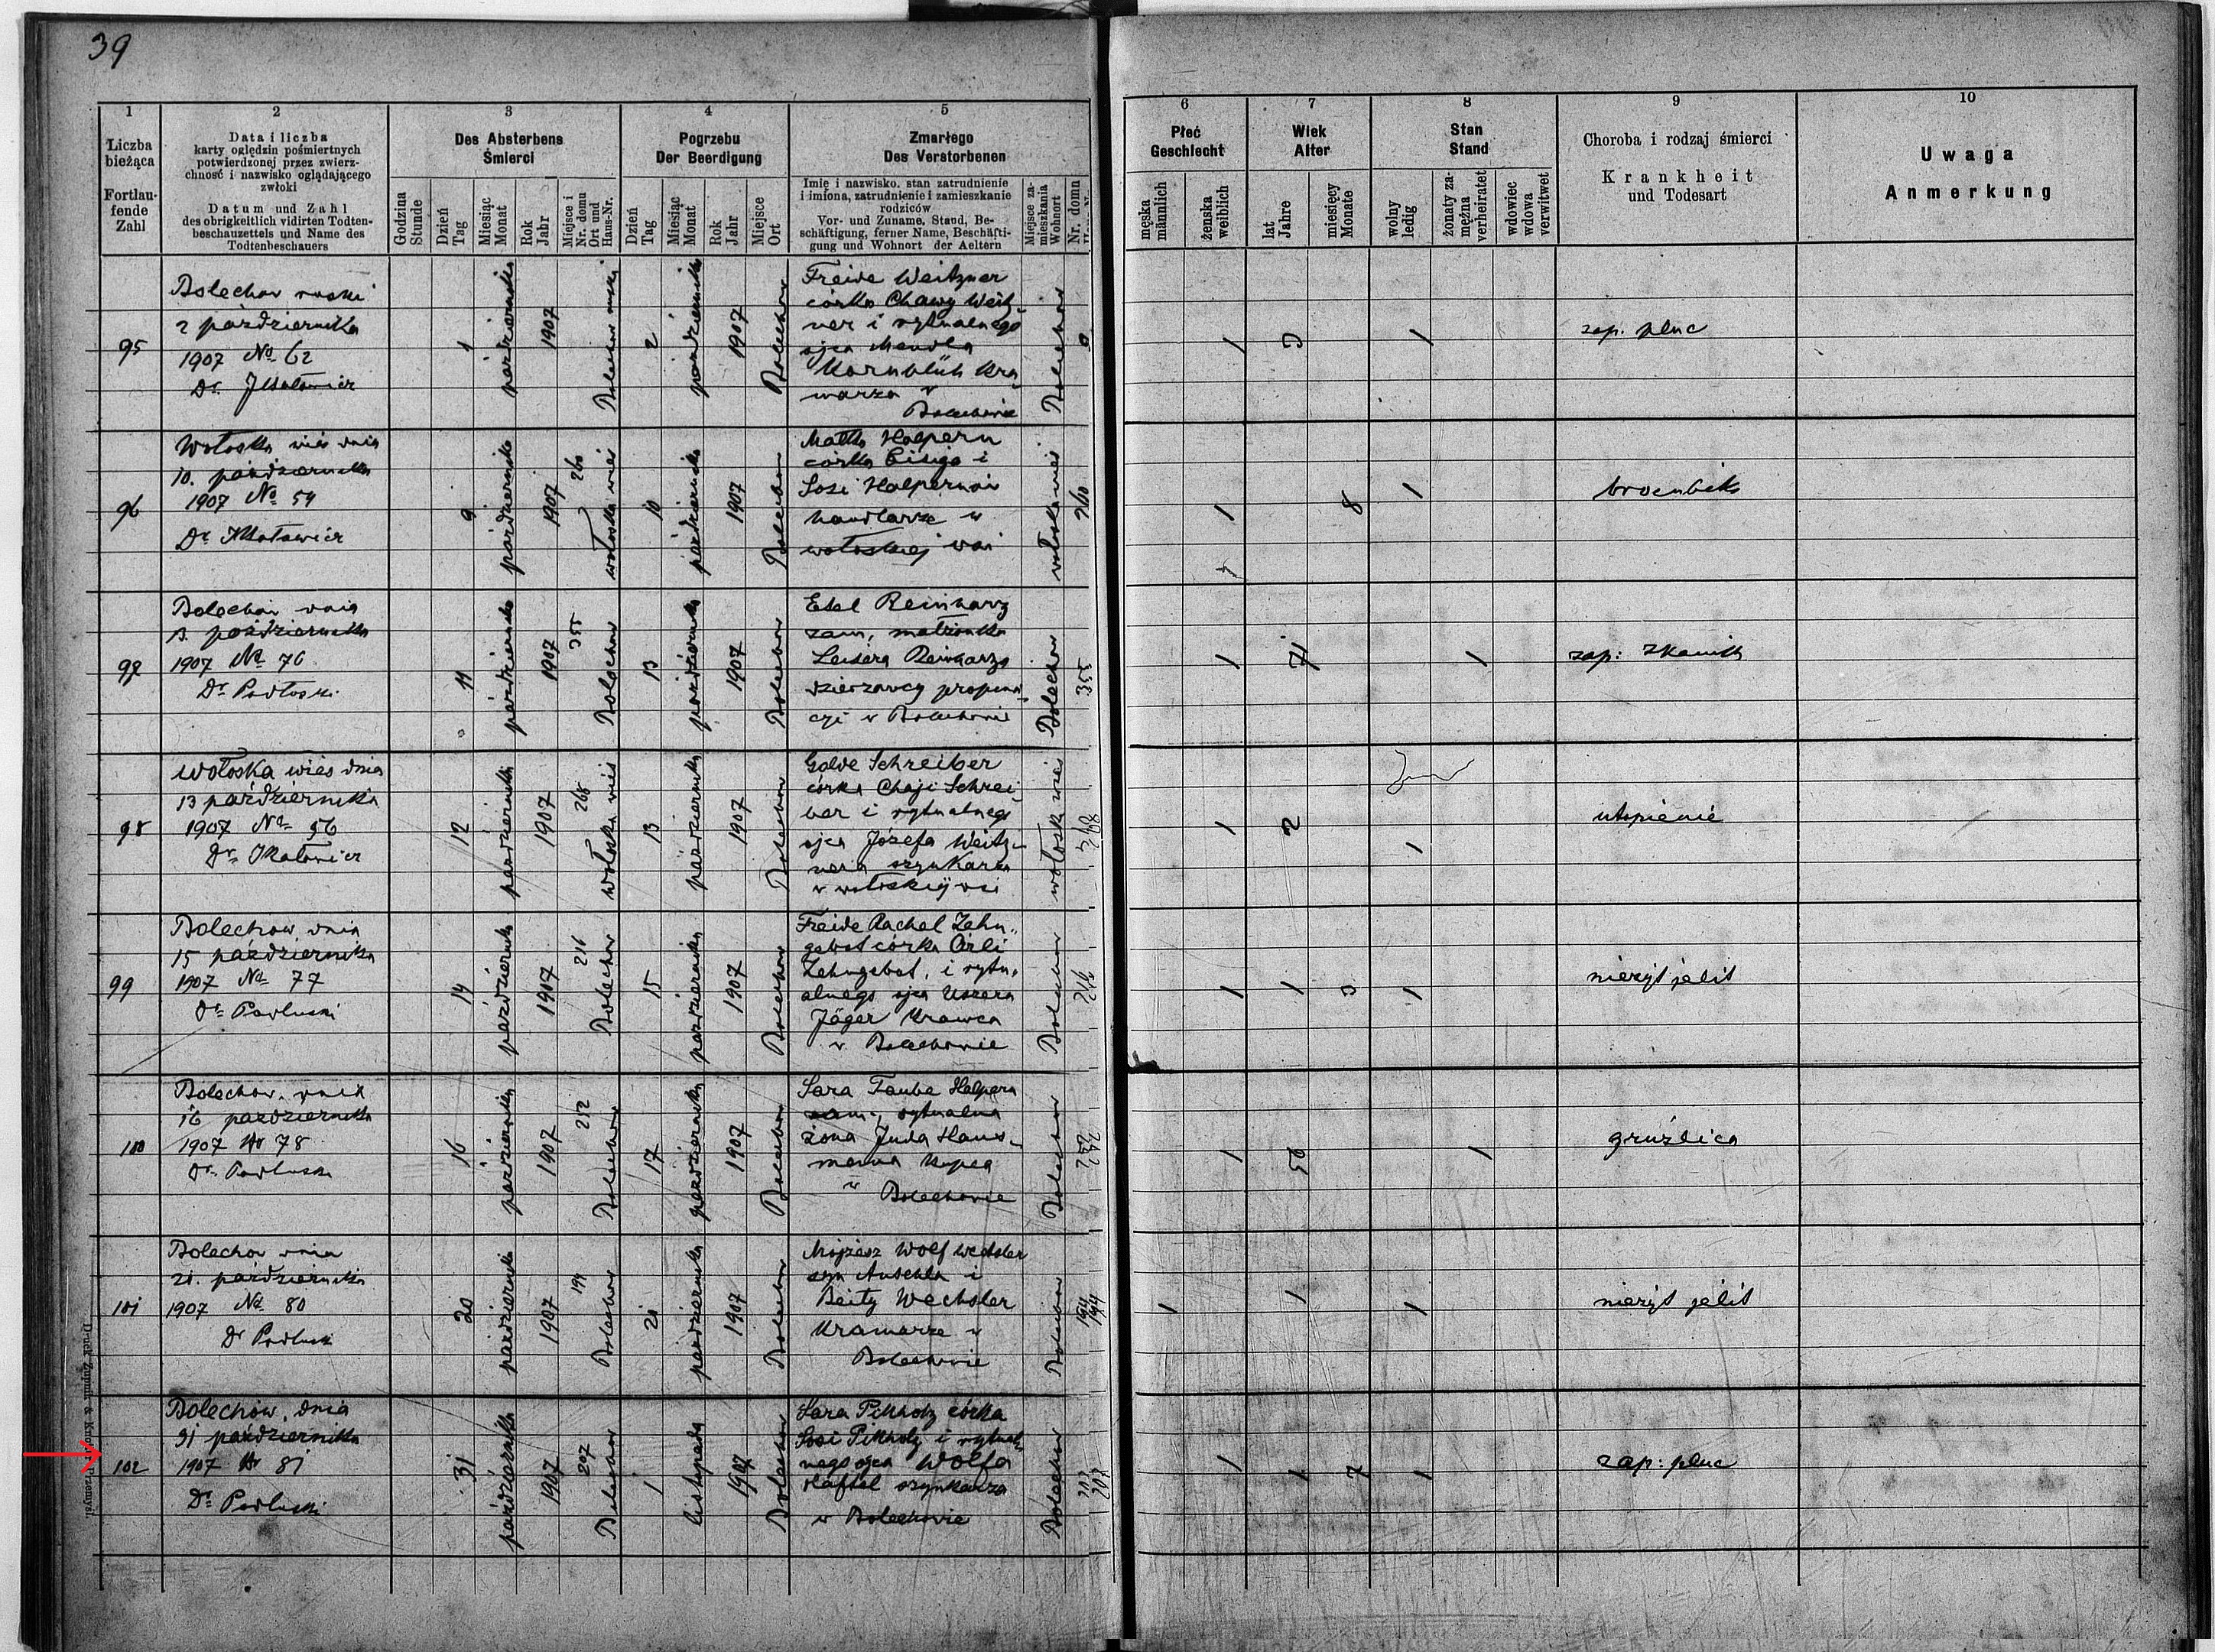 39
1
Liczba
bieżąca
Fortlau-
fende
Zahl
2
Data i liczba
karty oględzin pośmiertnych
potwierdzonej przez zwierz-
chność i nazwisko oglądającego
zwłoki
Datum und Zahl
des obrigkeitlich vidirten Todten-
beschauzettels und Name des
Todtenbeschauers
3
Des Absterbens
Śmierci
Godzina
Stunde
Dzień
Tag
Miesiąc
Monat
Rok
Jahr
Miejsce i
Nr. domu
Ort und
Haus-Nr.
4
Pogrzebu
Der Beerdigung
Dzień
Tag
Miesiąc
Monat
Rok
Jahr
Miejsce
Ort
5
Zmarłego
Des Verstorbenen
Imię i nazwisko, stan zatrudnienie
i imiona, zatrudnienie i zamieszkanie
rodziców
Vor- und Zuname, Stand, Be-
schäftigung, ferner Name, Beschäfti-
gung und Wohnort der Aeltern
Miejsce za-
mieszkania
Wohnort
Nr. domu
6
Płeć
Geschlecht
męska
männlich
żenska
weiblich
7
Wiek
Alter
lat
Jahre
miesięcy
Monate
8
Stan
Stand
wolny
ledig
żonaty za-
mężna
verheiratet
wdowiec
wdowa
verwitwet
9
Choroba i rodzaj śmierci
Krankheit
und Todesart
10
Uwaga
Anmerkung
95
Bolechow ruski
2 października
1907 No 62
Dr.
1
października
1907
Bolechow ruski
2
października
1907
Bolechow
Freide Weitzner
córka Chawy Weitz-
ner i rytualnego
ojca Mendla
Kornblüh kra-
marza w
Bolechowie
Bolechow
1
1
zap. płuc
96
Wołoska wieś dnia
10. października
1907 No 54
Dr
9
października
1907
260
wołoska wieś
10
października
1907
Bolechow
Halpern
córka
Sosi Halpernów
handlarze w
wołoskiej wsi
wołoska wieś
260
1
8
1
97
Bolechów dnia
13. października
1907 No 76
Dr
11
października
1907
355
Bolechow
13
października
1907
Bolechow
Etel Reinharz
zam. małżonka
Leisera Reinharza
dzierzawcy propina-
cyi w Bolechowie
Bolechow
355
1
71
1
98
Wołoska wieś dnia
13 października
1907 No 56
Dr.
12
października
1907
268
wołoska wieś
13
października
1907
Bolechow
Golde Schreiber
córka Chaji Schrei-
ber i rytualnego
ojca Józefa Weitz-
nera szynkarza
w wołoskiej wsi
wołoska wieś
1
2
1
utopienie
99
Bolechow dnia
15 października
1907 No 77
Dr Pawluski
14
października
1907
216
Bolechow
15
października
1907
Bolechow
Freide Rachel Zehn-
gebot córka Cirli
Zehngebot, i rytu-
alnego ojca Uszera
Jäger krawca
w Bolechowie
Bolechow
1
1
3
1
nieżyt jelit
100
Bolechow. dnia
16 października
1907 Nr 78
Dr. Pawluski
16
października
1907
252
Bolechow
17
października
1907
Bolechow
Sara Taube Halpern
zam., rytualna
żona Juda Haus-
manna kupca
w Bolechowie
Bolechow
252
1
50
1
gruźlica
101
Bolechow dnia
21. października
1907 No 80
Dr Pawluski
20
października
1907
194
Bolechow
21
października
1907
Bolechow
Mojżesz Wolf Wechsler
syn Anschla i
Beity Wechsler
kramarze w
Bolechowie
Bolechow
194
194
1
1
1
nieżyt jelit
102
Bolechów, dnia
31 października
1907 Nr 81
Dr Pawluski
31
października
1907
207
Bolechow
1
listopada
1907
Bolechow
Sara Pikholz córka
Sosi Pikholz i rytual-
nego ojca Wolfa
Haftel szynkarza
w Bolechowie
Bolechow
207
207
1
1
7
1
zap: płuc